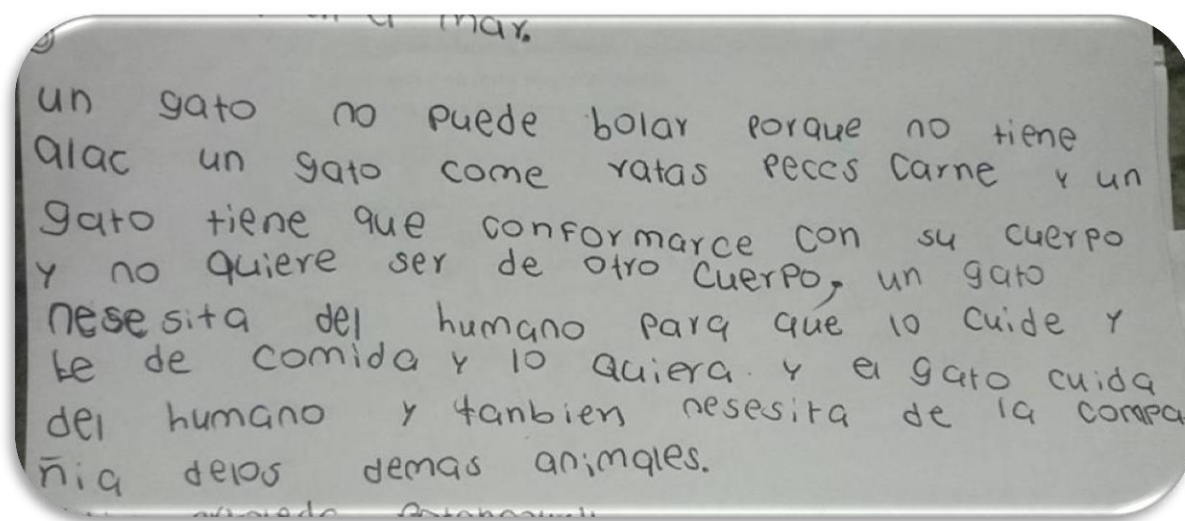 mar.
un gato no puede bolar porque no tiene
alac un gato come ratas peces carne y un
gato tiene que conformarce con su cuerpo
y no quiere ser de otro cuerpo, un gato
nesesita del humano para que lo cuide y
le de comida y lo quiera. y el gato cuida
del humano y tanbien nesesita de la compa
ñia delos demas animales.